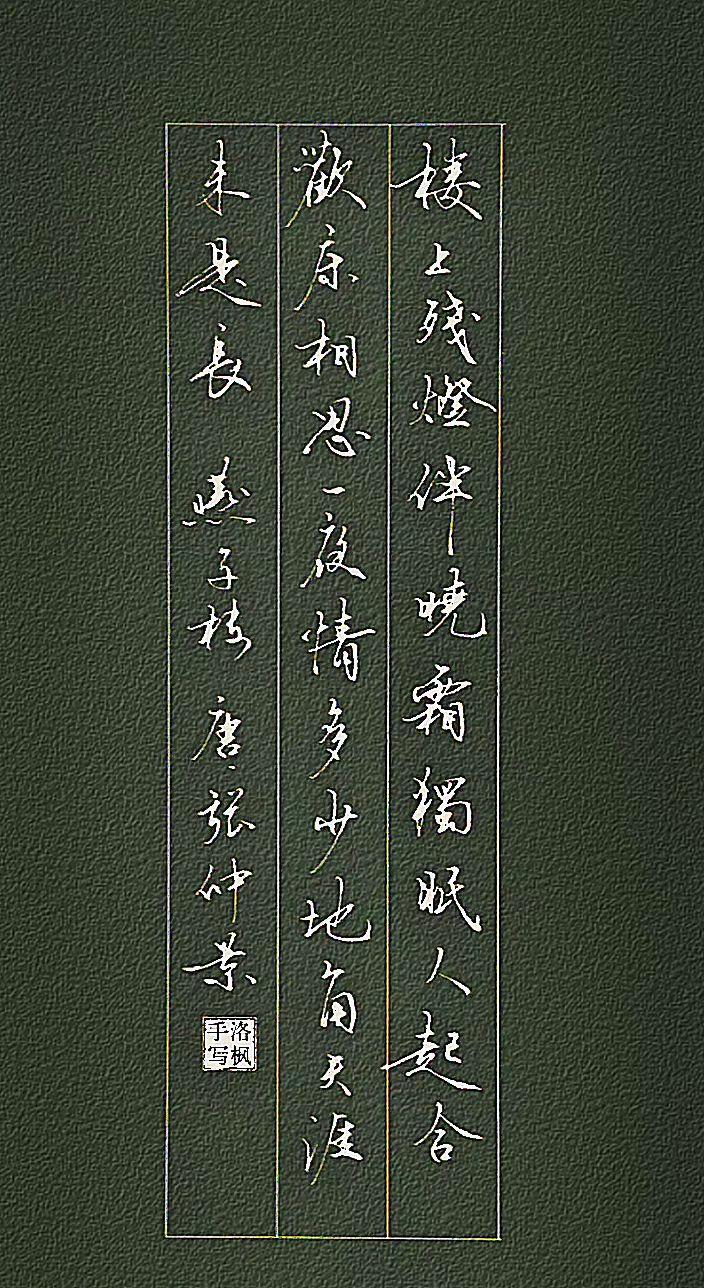 楼上残燈伴曉霜獨眠人起合
歡床相思一夜情多少地角天涯
未是長 燕子楼 唐 張仲景
洛枫
手写